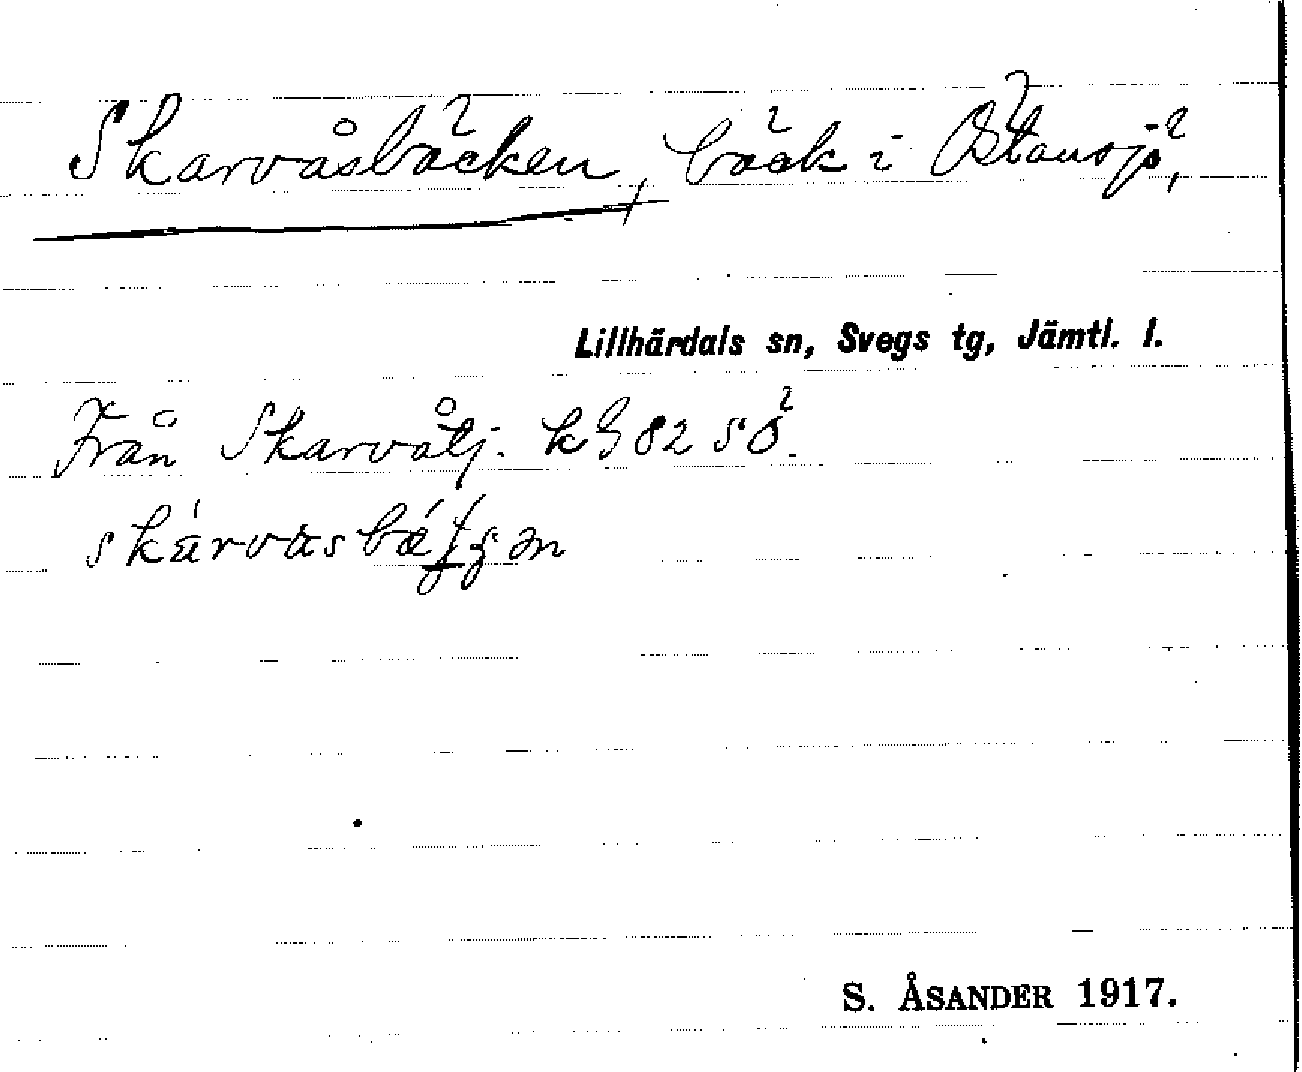 Skarvåsbäcken, bäck i Östansjö,
Lillhärdals sn, Svegs tg, Jämtl. l.
Från Skarvåtj. kg 82 sö.
S. ÅSANDER 1917.